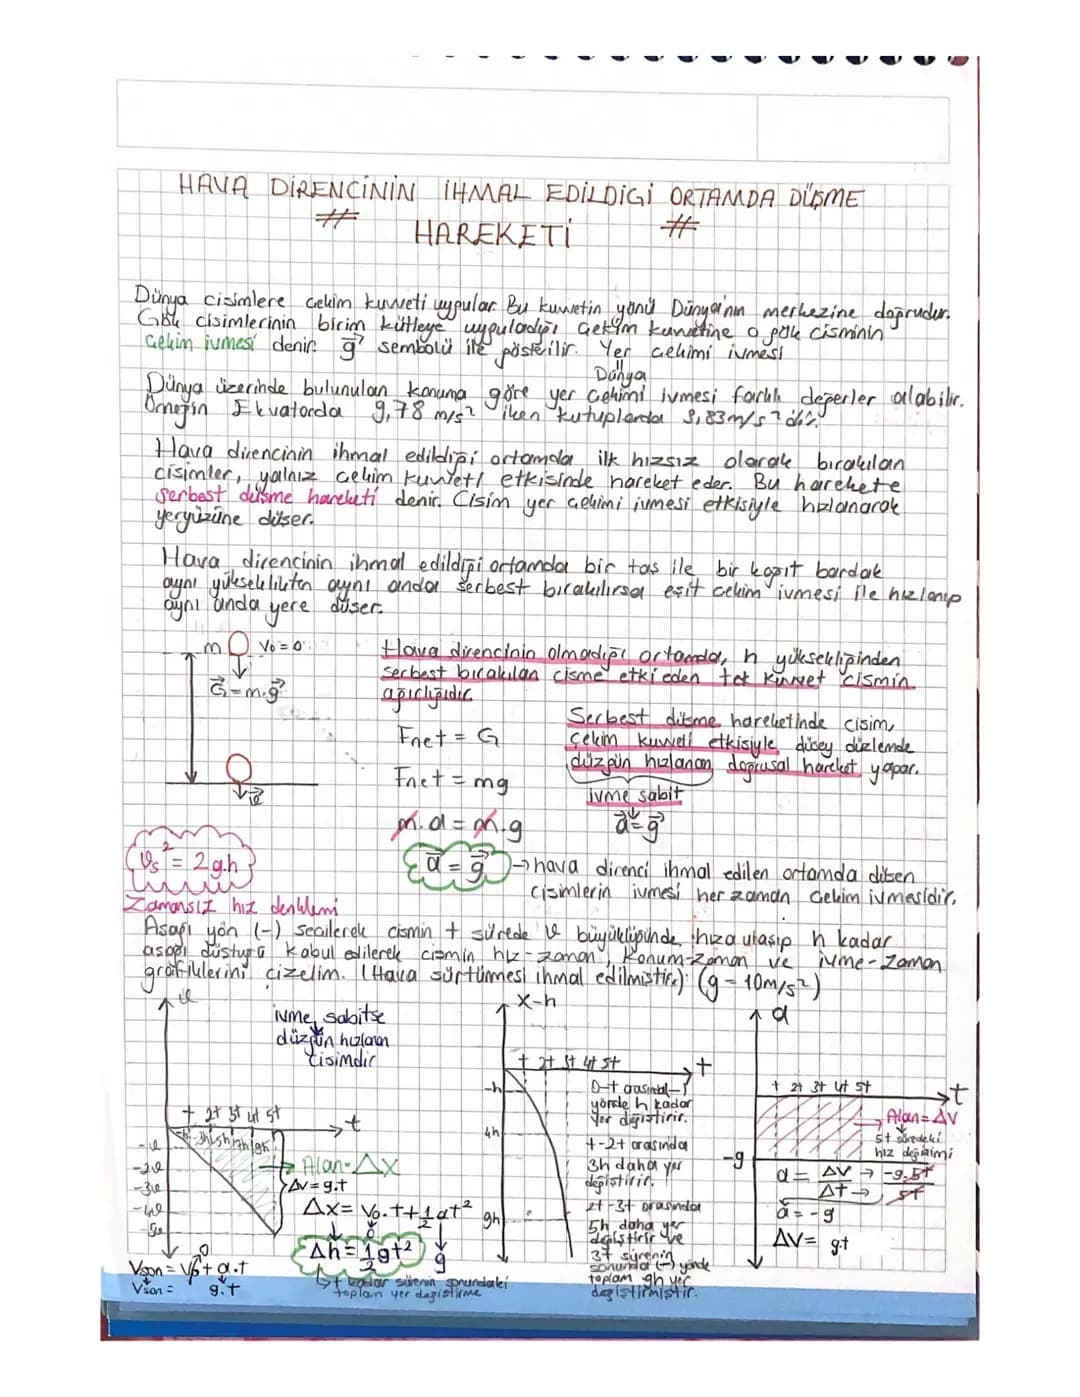 HAVA DİRENCİNİN İHMAL EDİLDİGİ ORTAMDA DÜŞME
HAREKETİ
Dünya cisimlere çekim kuvveti uygular. Bu kuvvetin yönü Dünya'nın merkezine doğrudur.
Gök cisimlerinin birim kütleye uyguladığı çekim kuvvetine o gök cisminin
çekim ivmesi denir. g⃗ sembolü ile gösterilir. Yer çekimi ivmesi
Dünya
Dünya üzerinde bulunulan konuma göre yer çekimi ivmesi farklı değerler alabilir.
Örneğin Ekvatorda 9,78 m/s² iken kutuplarda 9,83 m/s² dir.
Hava direncinin ihmal edildiği ortamda ilk hızsız olarak bırakılan
cisimler, yalnız çekim kuvveti etkisinde hareket eder. Bu harekete
serbest düşme hareketi denir. Cisim yer çekimi ivmesi etkisiyle hızlanarak
yeryüzüne düşer.
Hava direncinin ihmal edildiği ortamda bir taş ile bir kağıt bardak
aynı yükseklikten aynı anda serbest bırakılırsa eşit çekim ivmesi ile hızlanıp
aynı anda yere düşer.
m V₀ = 0
G⃗ = m.g⃗
h
v⃗
Hava direncinin olmadığı ortamda, h yüksekliğinden
serbest bırakılan cisme etki eden tek kuvvet cismin
ağırlığıdır.
Fnet = G
Fnet = mg
m.a = m.g
a⃗ = g⃗ → hava direnci ihmal edilen ortamda düşen
cisimlerin ivmesi her zaman çekim ivmesidir.
Serbest düşme hareketinde cisim,
çekim kuvveti etkisiyle düşey düzlemde
düzgün hızlanan doğrusal hareket yapar.
ivme sabit
a⃗ = g⃗
Vs² = 2g.h
Zamansız hız denklemi
Aşağı yön (-) seçilerek cismin t sürede v büyüklüğünde hıza ulaşıp h kadar
aşağı düştüğü kabul edilerek cismin hız-zaman, konum-zaman ve ivme-zaman
grafiklerini çizelim. (Hava sürtünmesi ihmal edilmiştir.) (g = 10m/s²)
v
ivme sabitse
düzgün hızlanan
cisimdir
t 2t 3t 4t 5t
t
h 3h 5h 7h 9h
-v
-2v
-3v
-4v
-5v
Alan = Δx
Δv = g.t
Δx = V₀.t + 1/2 at²
0
g
Δh = 1/2 gt²
t kadar sürenin sonundaki
toplam yer değiştirme
0
Vson = V₀ + a.t
Vson = g.t
x-h
t 2t 3t 4t 5t
t
-h
4h
9h
0-t arasında (-)
yönde h kadar
yer değiştirir.
t-2t arasında
3h daha yer
değiştirir.
2t-3t arasında
5h daha yer
değiştirir ve
3t sürenin
sonunda (-) yönde
toplam 9h yer
değiştirmiştir.
a
t 2t 3t 4t 5t
t
-g
Alan = ΔV
5t süredeki
hız değişimi
a = ΔV/Δt → -g.5t/5t
a⃗ = -g
ΔV = g.t